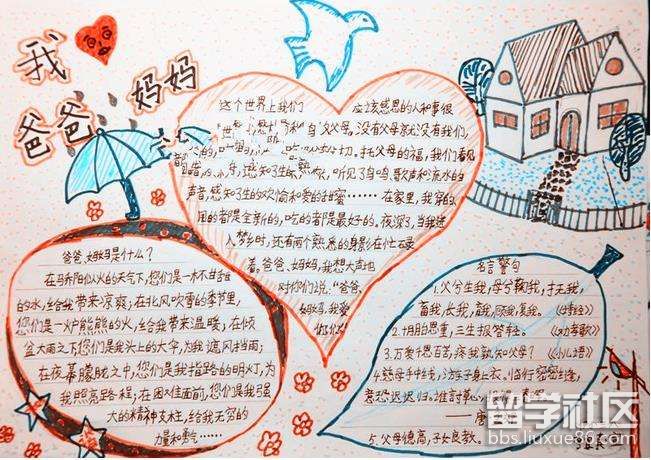 我
爸爸
妈妈
这个世界上我们 应该感恩的人和事很
父母，没有父母就没有我们，
切。托父母的福，我们看见
感知了生的熟
听见了鸟鸣歌声和流水的
声音，感知了生的欢愉和爱的甜蜜……在家里，我穿的
用的都是全新的，吃的都是最好的。夜深了，当我进
入梦乡时，还有两个熟悉的身影在忙忙碌
着。爸爸、妈妈，我想大声地
对你们说："爸爸、
妈妈，我爱
你们！"
爸爸、妈妈是什么？
在骄阳似火的天气下，您们是一杯甘甜
的水，给我带来凉爽；在北风吹雪的季节里，
您们是一炉熊熊的火，给我带来温暖；在倾
盆大雨之下，您们是我头上的大伞，为我遮风挡雨；
在夜幕朦胧之中，您们是我指路的明灯，为
我照亮路程；在困难面前，您们是我强
大的精神支柱，给我无穷的
力量和勇气……
名言警句
1.父兮生我，母兮鞠我，抚我，
畜我，长我，育我，顾我，复我。
2.十月胎恩重，三生报答轻。《劝孝歌》
3.万爱千恩百苦，疼我孰知父母？《小儿语》
4.慈母手中线，游子身上衣。临行密密缝，
意恐迟迟归。谁
——唐
5.父母德高，子女良教。
留学社区
bbs.liuxue86.com